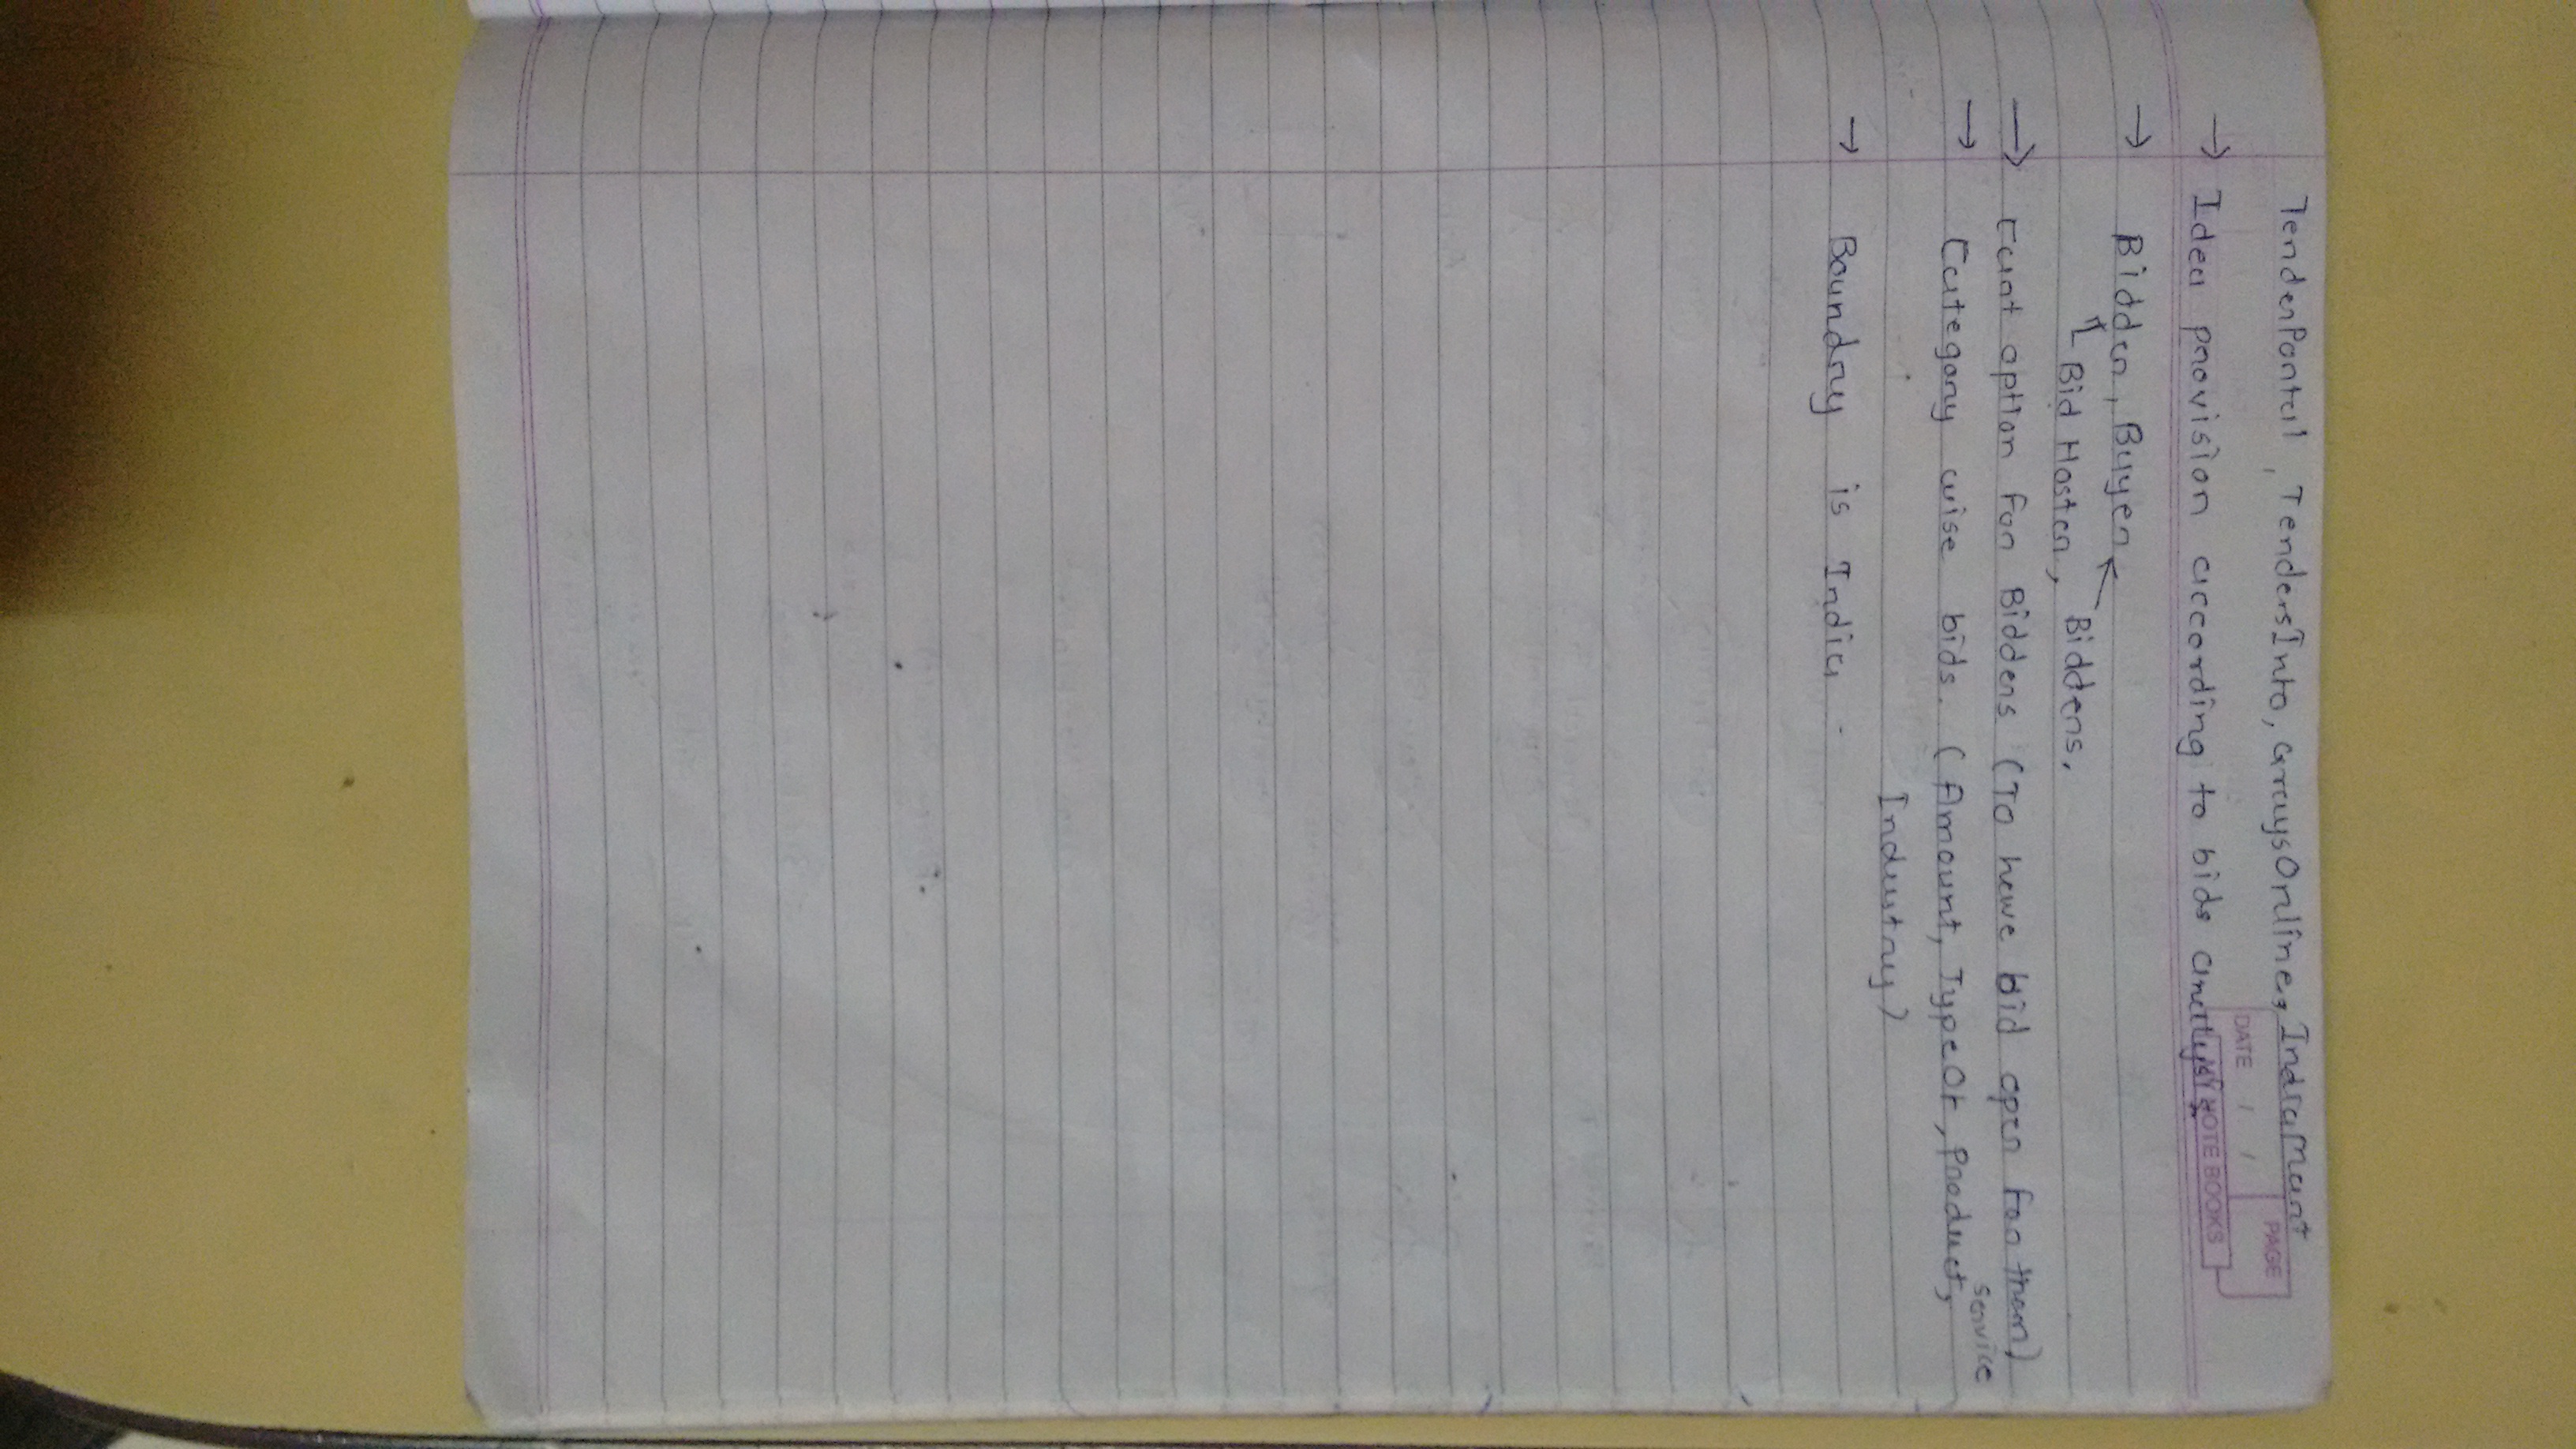 TenderPortal, TendersInfo, GraysOnline, IndiaMart
PAGE
DATE / /
MY NOTE BOOKS
→ Idea provision according to bids analysis
→ Bidder, Buyer
Bid Hoster, Bidders.
→ Cart option For Bidders (To have bid open for them)
→ Category wise bids. (Amount, TypeOf, Product, service
Industry)
→ Boundry is India